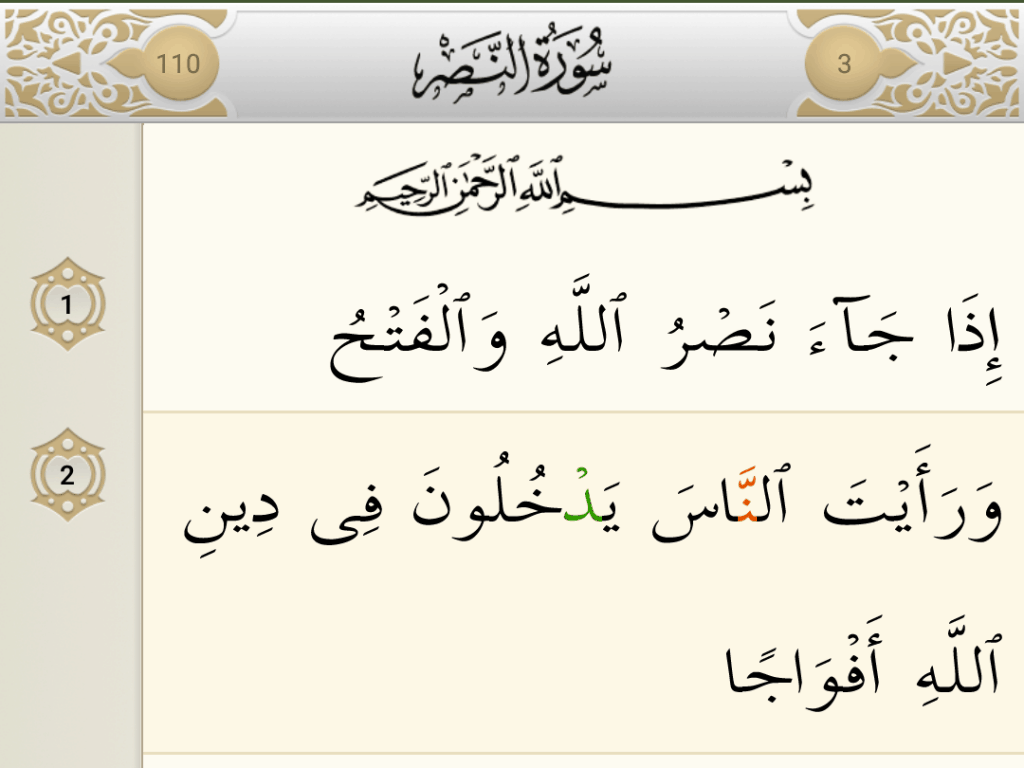 110 سُورَةُ النَّصْرِ 3
بِسْمِ ٱللَّهِ ٱلرَّحْمَٰنِ ٱلرَّحِيمِ
1 إِذَا جَآءَ نَصْرُ ٱللَّهِ وَٱلْفَتْحُ
2 وَرَأَيْتَ ٱلنَّاسَ يَدْخُلُونَ فِى دِينِ
ٱللَّهِ أَفْوَاجًا